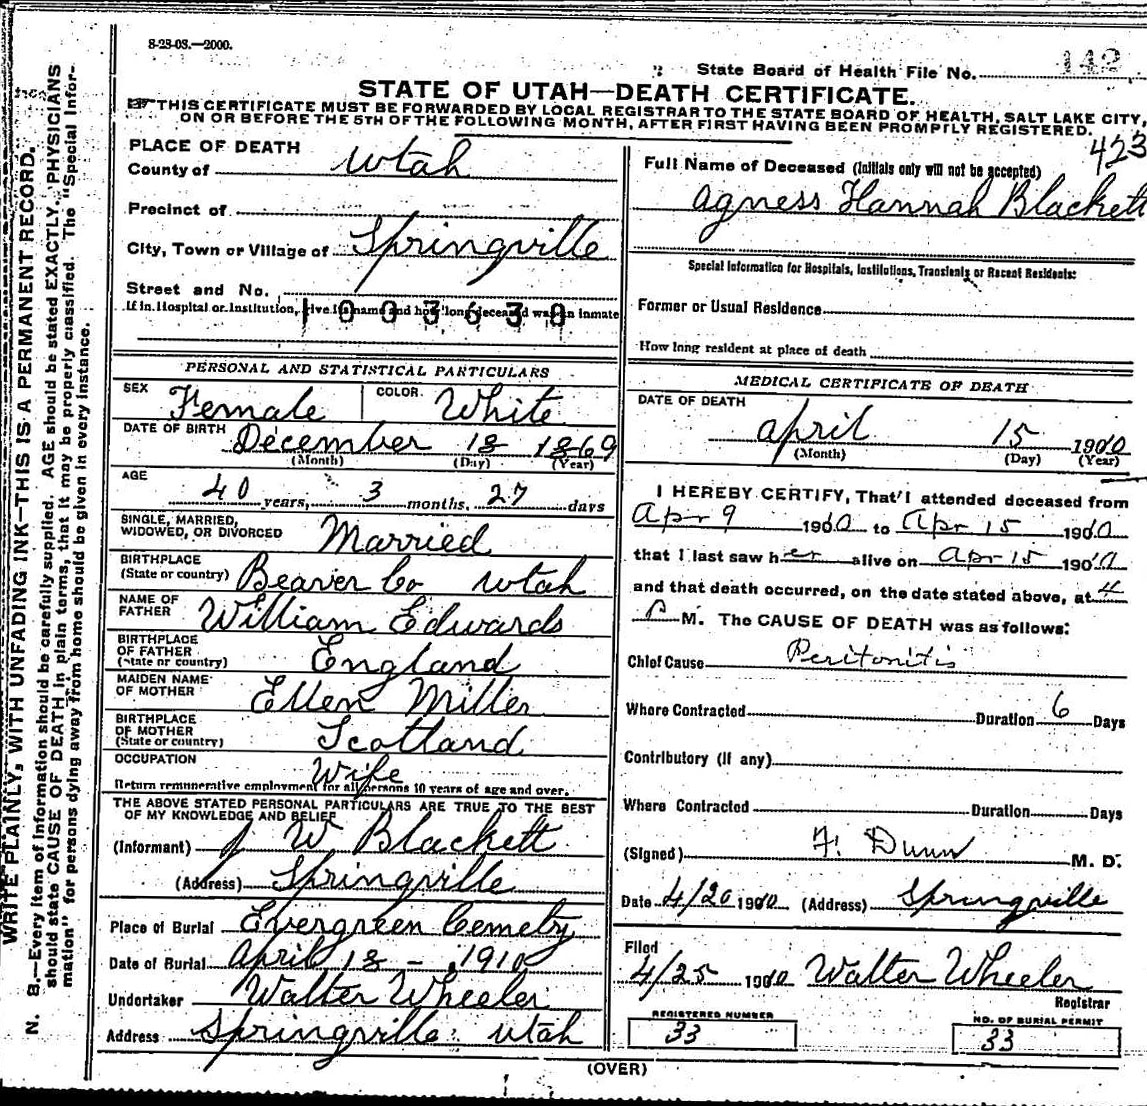 8-23-03.—2000.
142
State Board of Health File No.
STATE OF UTAH—DEATH CERTIFICATE.
THIS CERTIFICATE MUST BE FORWARDED BY LOCAL REGISTRAR TO THE STATE BOARD OF HEALTH, SALT LAKE CITY,
ON OR BEFORE THE 5TH OF THE FOLLOWING MONTH, AFTER FIRST HAVING BEEN PROMPTLY REGISTERED.
423
WRITE PLAINLY, WITH UNFADING INK—THIS IS A PERMANENT RECORD.
N. B.—Every item of information should be carefully supplied. AGE should be stated EXACTLY. PHYSICIANS
should state CAUSE OF DEATH in plain terms, that it may be properly classified. The "Special Infor-
mation" for persons dying away from home should be given in every instance.
PLACE OF DEATH
County of Utah
Precinct of
City, Town or Village of Springville
Street and No.
If in Hospital or Institution, give its name and how long deceased was an inmate
1003630
PERSONAL AND STATISTICAL PARTICULARS
SEX Female COLOR. White
DATE OF BIRTH December 18 1869
(Month) (Day) (Year)
AGE
40 years, 3 months, 27 days
SINGLE, MARRIED,
WIDOWED, OR DIVORCED Married
BIRTHPLACE
(State or country) Beaver Co Utah
NAME OF
FATHER William Edwards
BIRTHPLACE
OF FATHER
(State or country) England
MAIDEN NAME
OF MOTHER Ellen Miller
BIRTHPLACE
OF MOTHER
(State or country) Scotland
OCCUPATION Wife
Return remunerative employment for all persons 10 years of age and over.
THE ABOVE STATED PERSONAL PARTICULARS ARE TRUE TO THE BEST
OF MY KNOWLEDGE AND BELIEF
(Informant) J W Blackett
(Address) Springville
Place of Burial Evergreen Cemetry
Date of Burial April 18 - 1910
Undertaker Walter Wheeler
Address Springville Utah
Full Name of Deceased (Initials only will not be accepted)
Agness Hannah Blackett
Special Information for Hospitals, Institutions, Transients or Recent Residents:
Former or Usual Residence
How long resident at place of death
MEDICAL CERTIFICATE OF DEATH
DATE OF DEATH
April 15 1910
(Month) (Day) (Year)
I HEREBY CERTIFY, That I attended deceased from
Apr 9 1910 to Apr 15 1910
that I last saw her alive on Apr 15 1910
and that death occurred, on the date stated above, at 4
P M. The CAUSE OF DEATH was as follows:
Chief Cause Peritonitis
Where Contracted Duration 6 Days
Contributory (if any)
Where Contracted Duration Days
(Signed) F. Dunn M. D.
Date 4/20 1910 (Address) Springville
Filed
4/25 1910 Walter Wheeler
Registrar
REGISTERED NUMBER
33
NO. OF BURIAL PERMIT
33
(OVER)